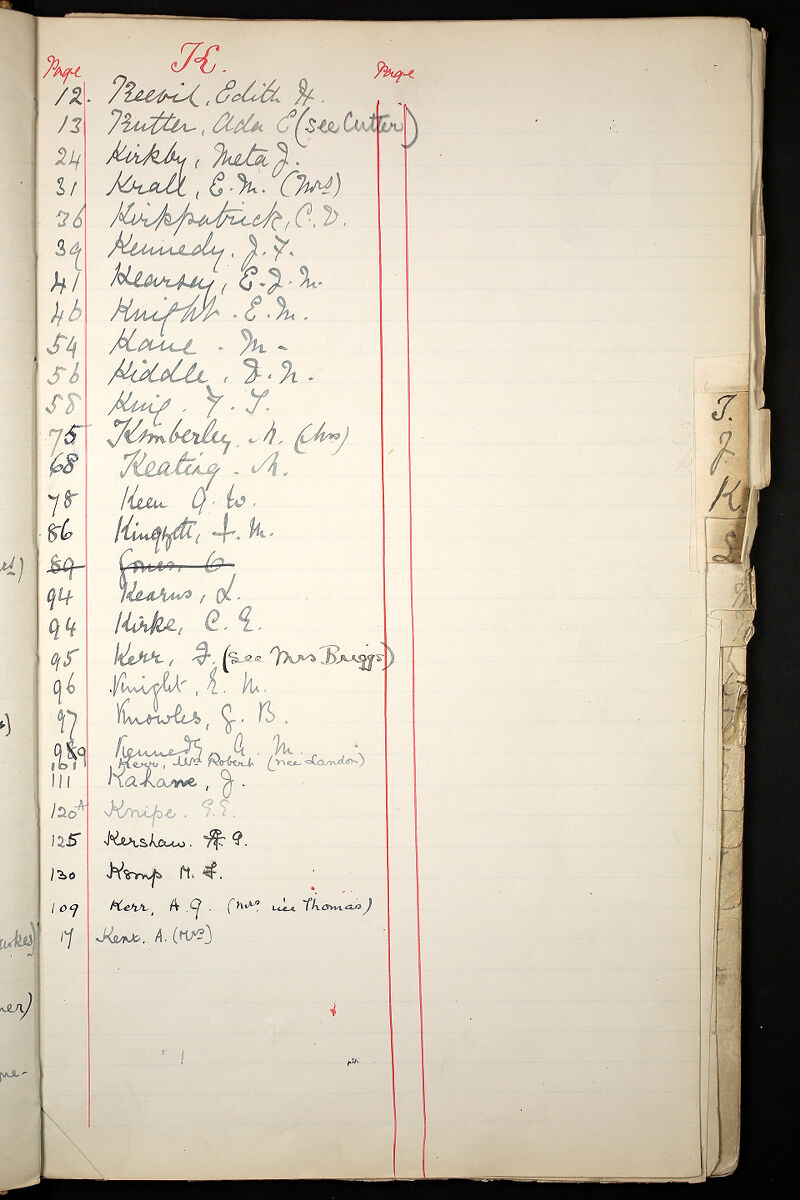 K.
Page Page
12. Keevil, Edith H.
13 Kutter, Ada E (see Cutter)
24 Kirkby, Meta J.
31 Krall, E. M. (Mrs)
36 Kirkpatrick, C. V.
39 Kennedy. J. F.
41 Kearsey, E. J. M.
46 Knight. E. M.
54 Kane. M-
56 Kiddle. D. N.
58 King. F. T.
75 Kimberley. M. (Mrs)
68 Keating. M.
78 Keen W.
86 M.
89 Jones, C
94 Kearns, L.
94 Kirke, C. E.
95 Kerr, J. (see Mrs Briggs)
96 Knight, E. M.
97 Knowles, G. B.
Kennedy G. M.
101 Kerr, Mrs Robert (nee Landon)
111 Kahane, J.
120A Knipe. E. E.
125 Kershaw. P.
130 Kemp M. J.
109 Kerr, A. G. (Mrs née Thomas)
17 Kent. A. (Mrs)
J.
K
L